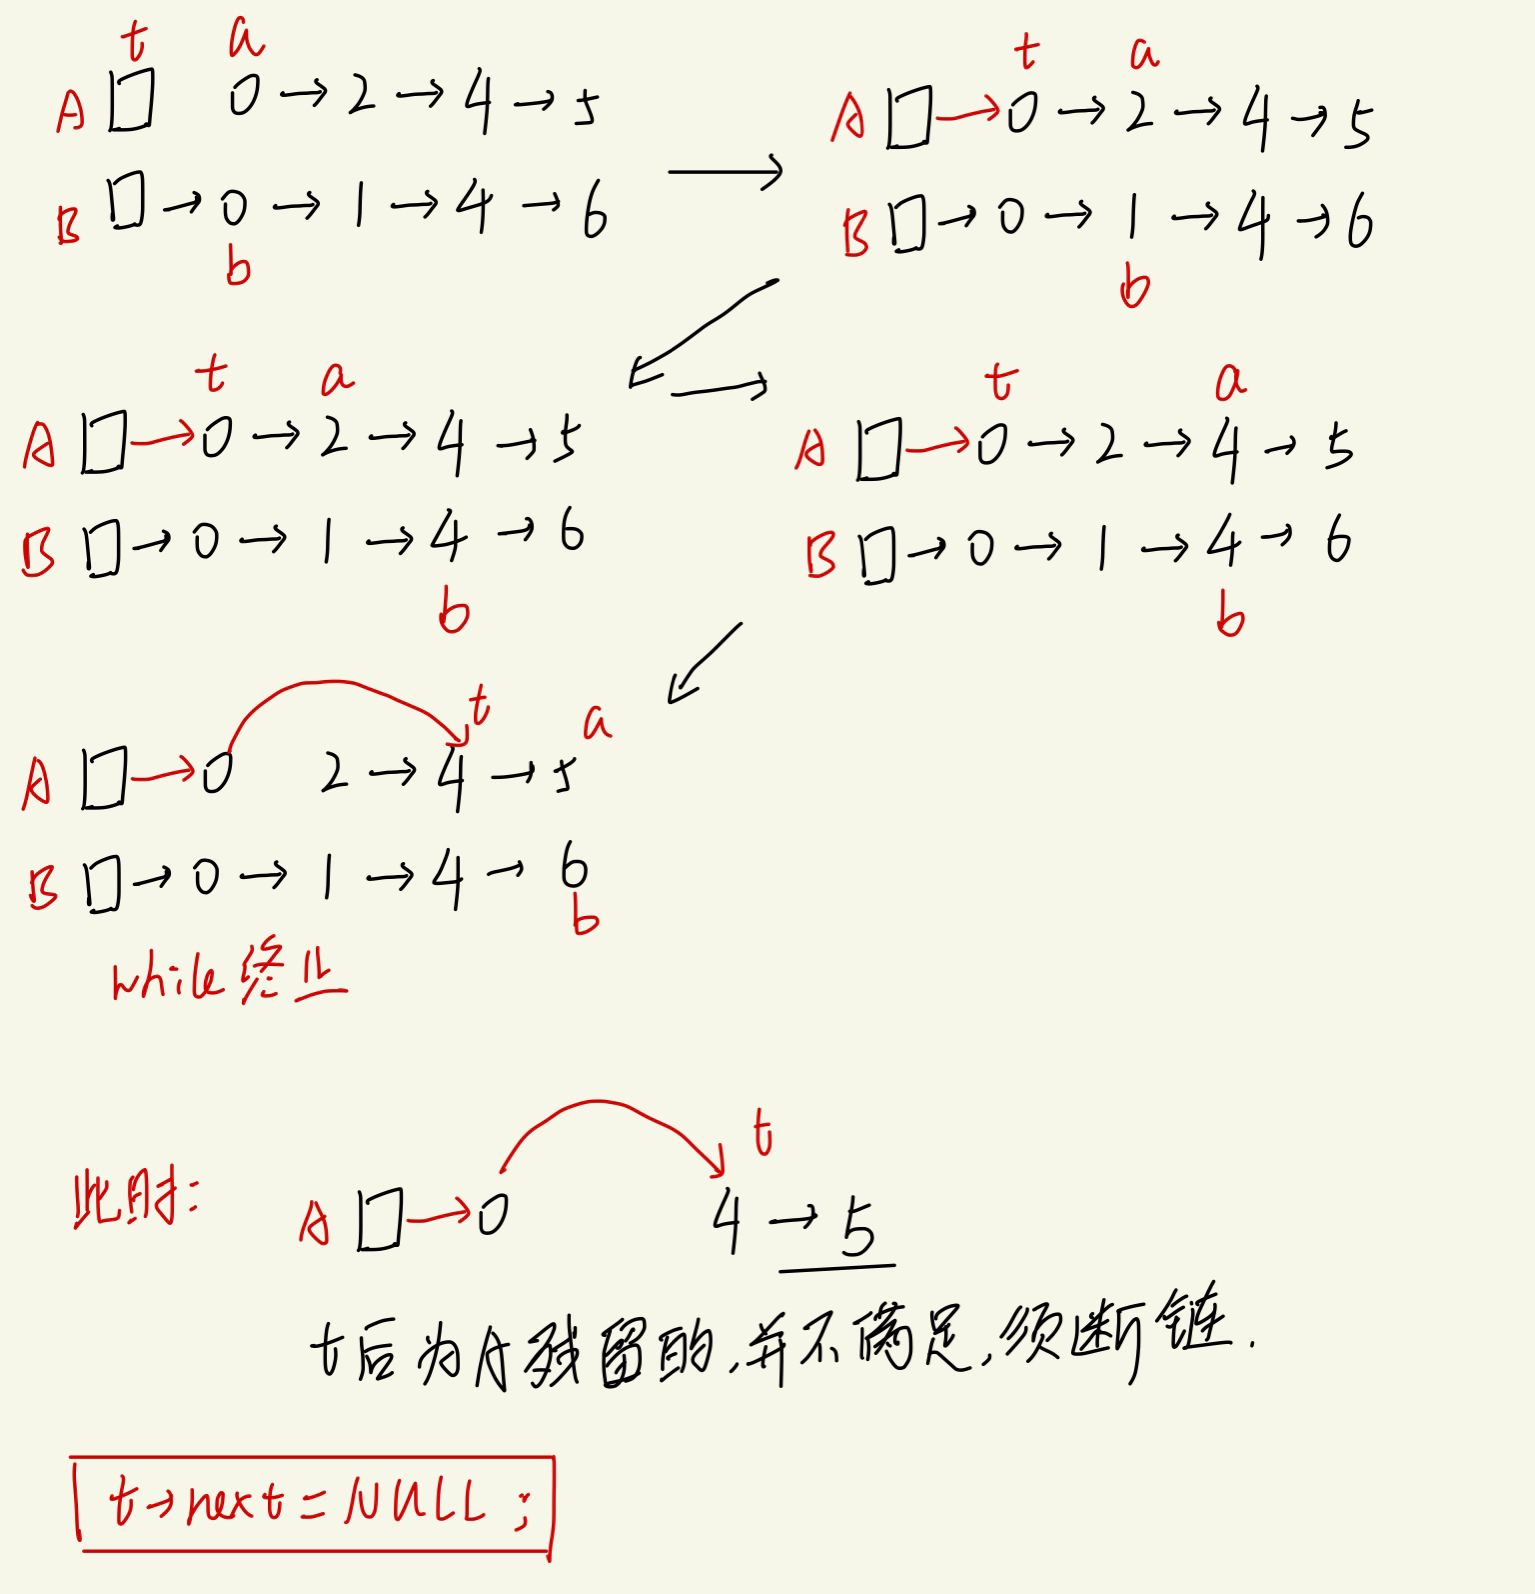 t a
A □ 0 → 2 → 4 → 5
B □ → 0 → 1 → 4 → 6
b
t a
A □ → 0 → 2 → 4 → 5
B □ → 0 → 1 → 4 → 6
b
t a
A □ → 0 → 2 → 4 → 5
B □ → 0 → 1 → 4 → 6
b
t a
A □ → 0 → 2 → 4 → 5
B □ → 0 → 1 → 4 → 6
b
t a
A □ → 0 2 → 4 → 5
B □ → 0 → 1 → 4 → 6
b
while 终止
t
此时: A □ → 0 4 → 5
t后为A残留的,并不满足,须断链.
t→next = NULL ;